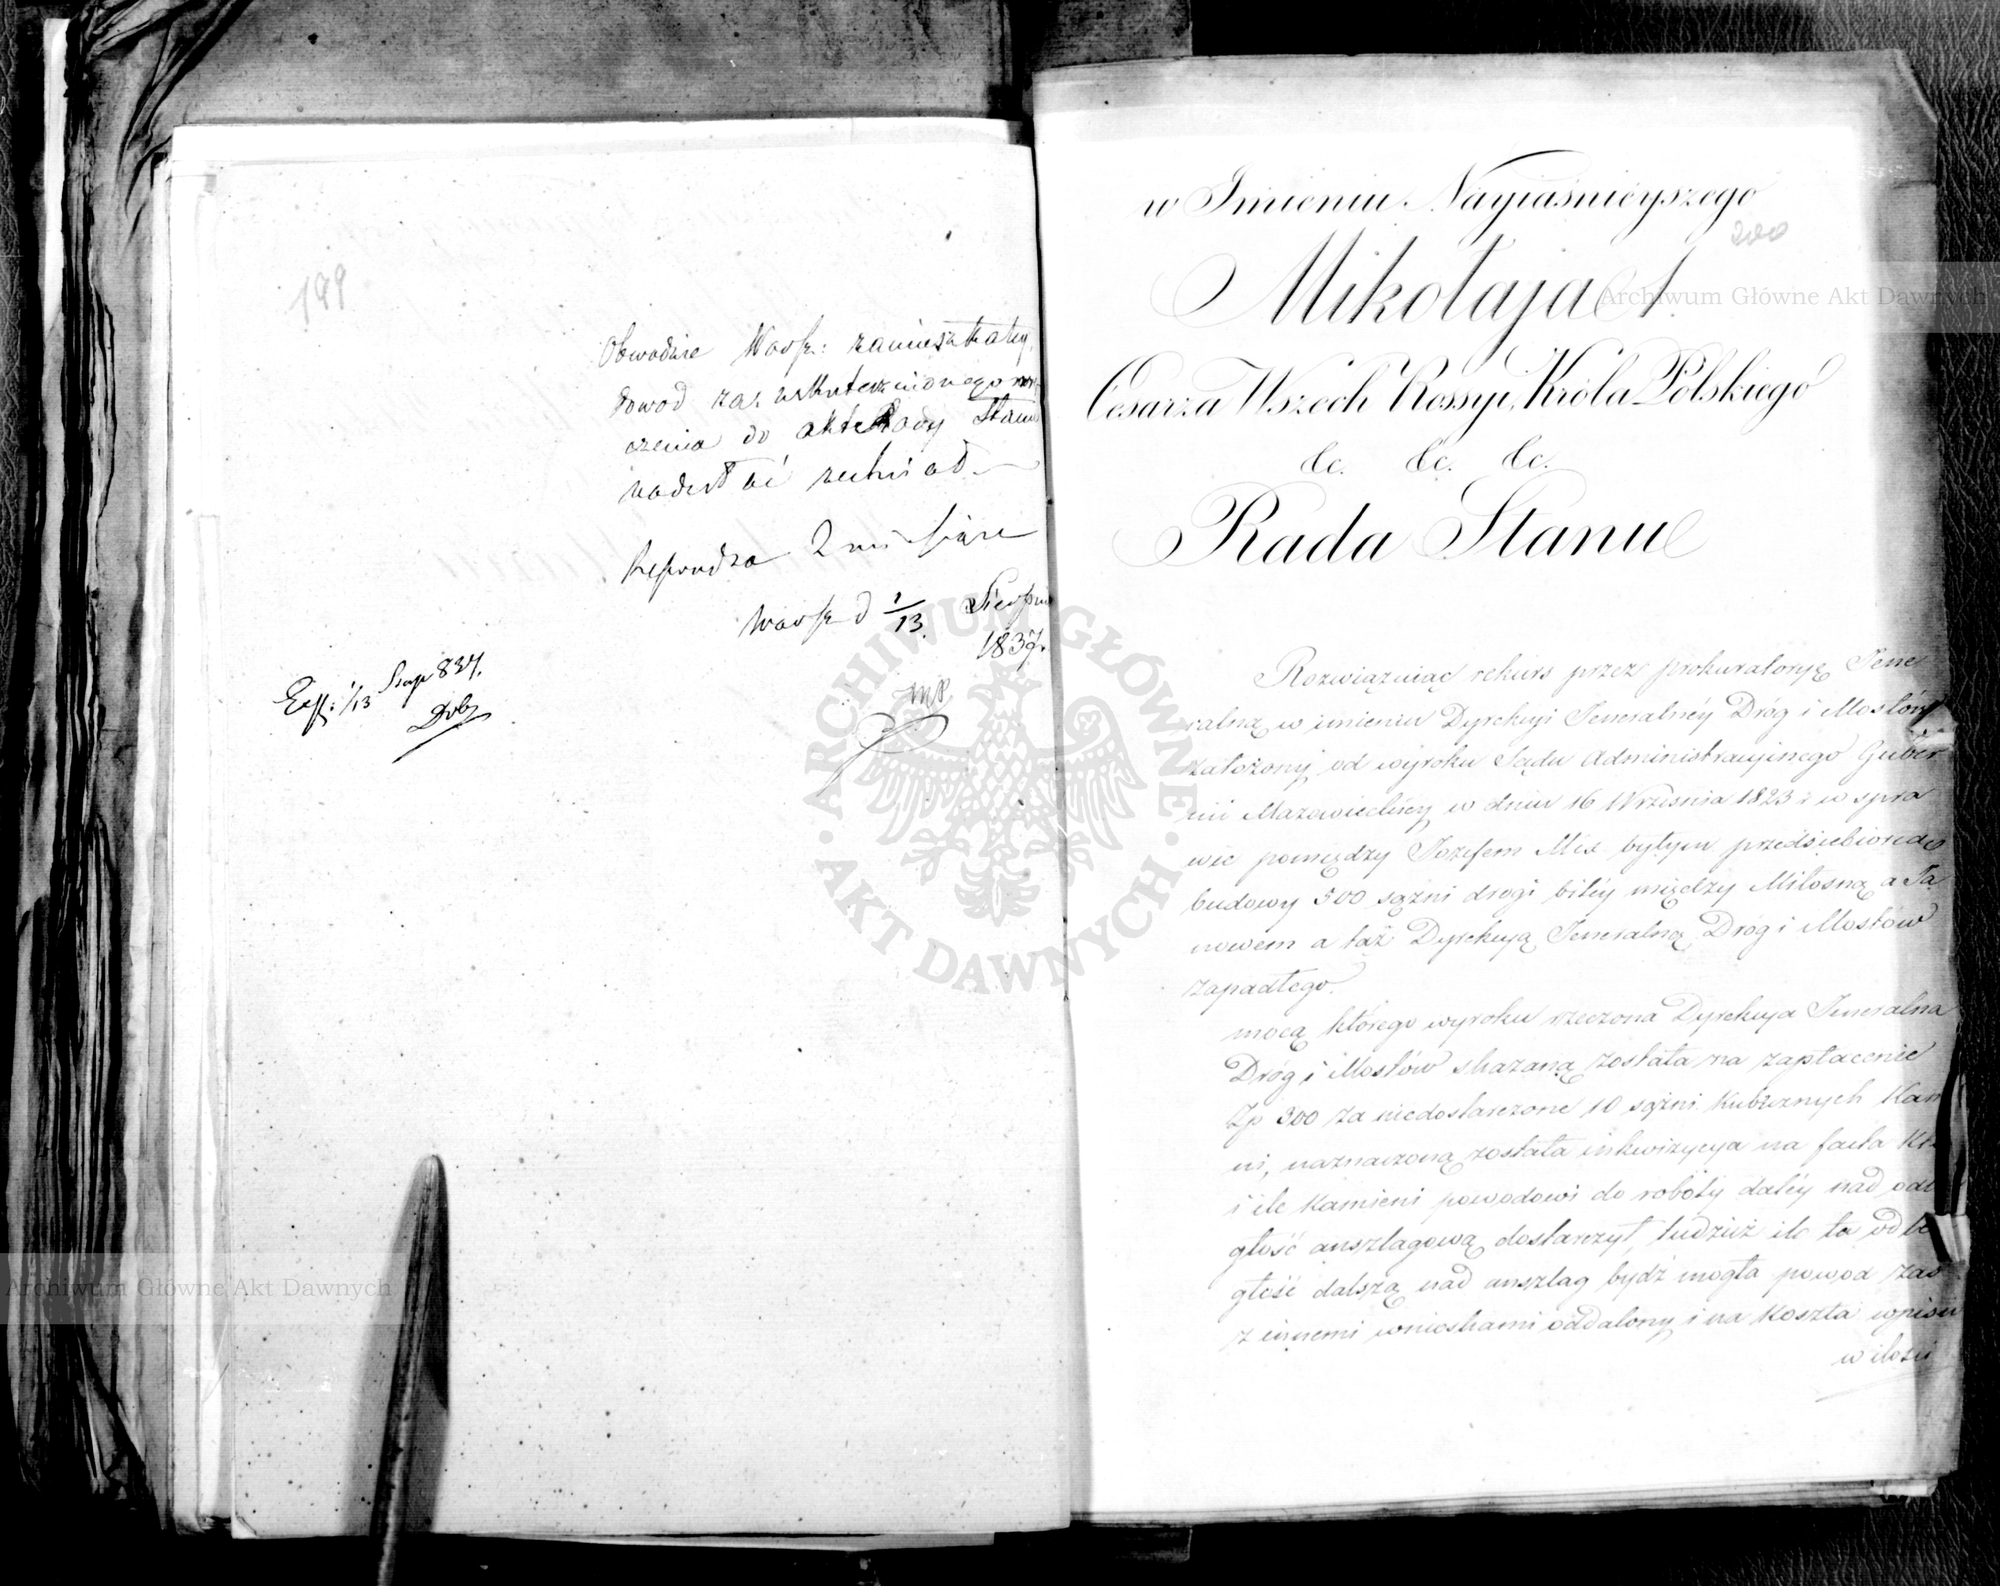 199
Obwodzie Warsz: zamieszkałey,
dowod zaś uskutecznionego
czenia do akt Rady Stanu
nadesłać zechciał.
2 miesiące
Warsz d 1/13. Sierpnia
1837.
1/13 Sierp 837.
w Imieniu Nayiaśnieyszego
200
Mikołaja I.
Cesarza Wszech Rossyi, Króla Polskiego
&c. &c. &c.
Rada Stanu
Rozwiązuiąc rekurs przez prokuratoryę Jene
ralną w imieniu Dyrekcyi Jeneralnéy Dróg i Mostów
założony od wyroku Sądu Administracyinego Guber
nii Mazowieckiéy w dniu 16 Września 1823 r w spra
wie pomiędzy Józefem Mex byłym przedsiębiorcą
budowy 500 sążni drogi bitéy między Miłosną a Ja
nowem a taż Dyrekcyą Jeneralną Dróg i Mostów
zapadłego.
mocą którego wyroku rzeczona Dyrekcya Jeneralna
Dróg i Mostów skazaną została na zapłacenie
Zp 300 za niedostarczone 10 sążni Kubicznych Kam
ni, naznaczoną została inkwizycya na facta
i ile Kamieni powodowi do roboty daléy nad odle
głość anszlagową dostarczył, tudzież ile ta odle
głość dalszą nad anszlag bydź mogła powod zaś
z innemi wnioskami oddalony i na Koszta wpisu
w ilości
Archiwum Główne Akt Dawnych
Archiwum Główne Akt Dawnych
ARCHIWUM GŁÓWNE · AKT DAWNYCH ·